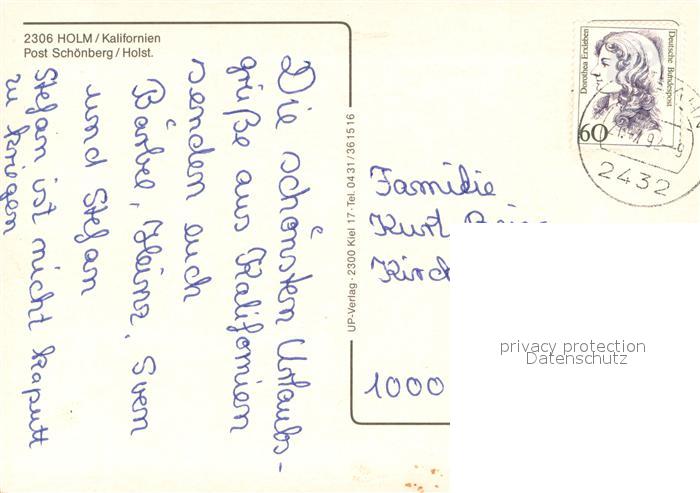 2306 HOLM / Kalifornien
Post Schönberg / Holst.
Die schönsten Urlaubs-
grüße aus Kalifornien
senden euch
Bärbel, Heinz, Sven
und Stefan
Stefan ist nicht kaputt
zu kriegen
UP-Verlag · 2300 Kiel 17 · Tel. 0431/361516
Dorothea Erxleben
Deutsche Bundespost
60
2432
Familie
Kurt
Kirch
1000
privacy protection
Datenschutz